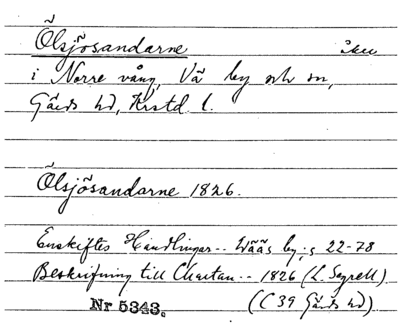 Ölsjösandarne åker
i Norre vång, Vä by och sn,
Gärds hd, Krstd. l.
Ölsjösandarne 1826.
Enskiftes Handlingar -- Wääs by; s 22-78
Beskrifning till Chartan -- 1826 (L. Segrell)
Nr 5343. (C 39 Gärds hd)